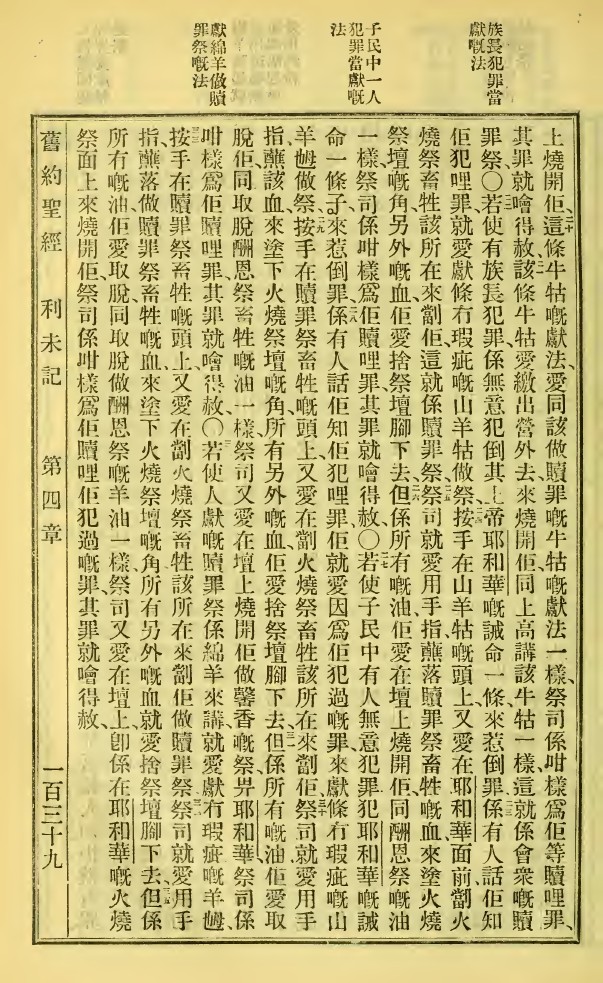 族長犯罪當
獻嘅法
子民中一人
犯罪當獻嘅
法
獻綿羊做贖
罪祭嘅法
上燒開佢、二十這條牛牯嘅獻法、愛同該做贖罪嘅牛牯嘅獻法一樣、祭司係咁樣爲佢等贖哩罪、
其罪就噲得赦、二一該條牛牯愛繳出營外去來燒開佢、同上高講該牛牯一樣、這就係會衆嘅贖
罪祭〇二二若使有族長犯罪係無意犯倒其上帝耶和華嘅誡命一條、來惹倒罪、二三係有人話佢知
佢犯哩罪、就愛獻條冇瑕疵嘅山羊牯做祭、二四按手在山羊牯嘅頭上、又愛在耶和華面前劏火
燒祭畜牲該所在來劏佢、這就係贖罪祭、二五祭司就愛用手指蘸落贖罪祭畜牲嘅血、來塗火燒
祭壇嘅角、另外嘅血佢愛捨祭壇腳下去、二六但係所有嘅油、佢愛在壇上燒開佢、同酬恩祭嘅油
一樣、祭司係咁樣爲佢贖哩罪、其罪就噲得赦〇二七若使子民中有人無意犯罪、犯耶和華嘅誡
命一條子、來惹倒罪、二八係有人話佢知佢犯哩罪、佢就愛因爲佢犯過嘅罪、來獻條冇瑕疵嘅山
羊𡜵做祭、二九按手在贖罪祭畜牲嘅頭上、又愛在劏火燒祭畜牲該所在來劏佢、三十祭司就愛用手
指蘸該血、來塗下火燒祭壇嘅角、所有另外嘅血、佢愛捨祭壇腳下去、三一但係所有嘅油、佢愛取
脫佢、同取脫酬恩祭畜牲嘅油一樣、祭司又愛在壇上燒開佢、做馨香嘅祭畀耶和華、祭司係
咁樣爲佢贖哩罪、其罪就噲得赦〇三二若使人獻嘅贖罪祭係綿羊來講、就愛獻冇瑕疵嘅羊𡜵、
三三按手在贖罪祭畜牲嘅頭上、又愛在劏火燒祭畜牲該所在來劏佢做贖罪祭、三四祭司就愛用手
指蘸落做贖罪祭畜牲嘅血、來塗下火燒祭壇嘅角、所有另外嘅血、就愛捨祭壇腳下去、三五但係
所有嘅油、佢愛取脫、同取脫做酬恩祭嘅羊油一樣、祭司又愛在壇上、卽係在耶和華嘅火燒
祭面上來燒開佢、祭司係咁樣爲佢贖哩佢犯過嘅罪、其罪就噲得赦、
舊約聖經 利未記 第四章 一百三十九